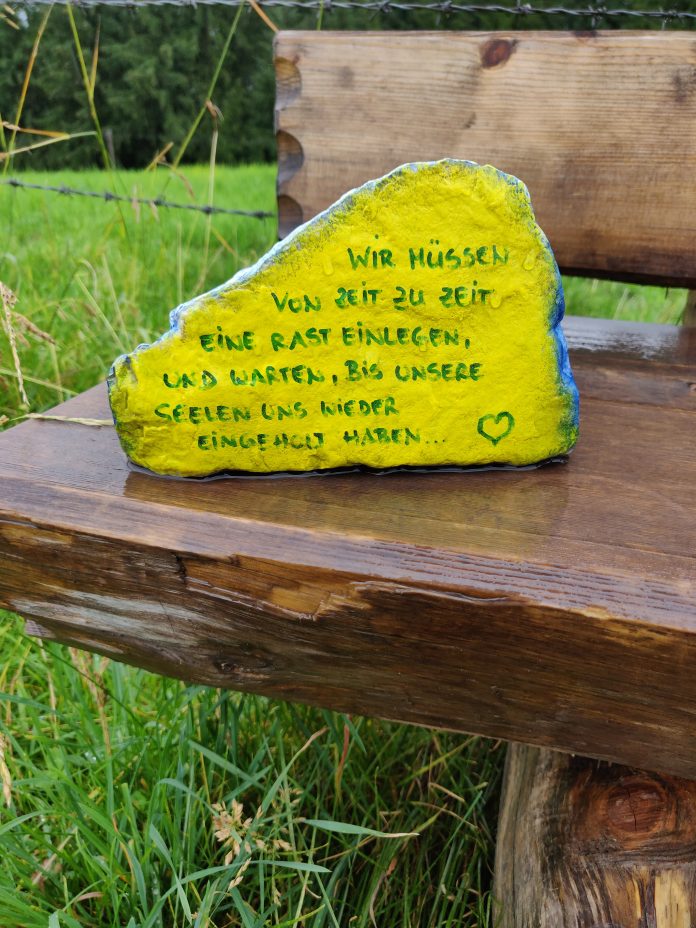 WIR MÜSSEN
VON ZEIT ZU ZEIT
EINE RAST EINLEGEN,
UND WARTEN, BIS UNSERE
SEELEN UNS WIEDER
EINGEHOLT HABEN...